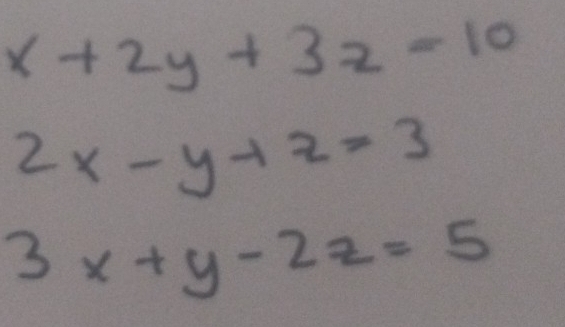 x + 2y + 3z = 10
2x - y + z = 3
3x + y - 2z = 5